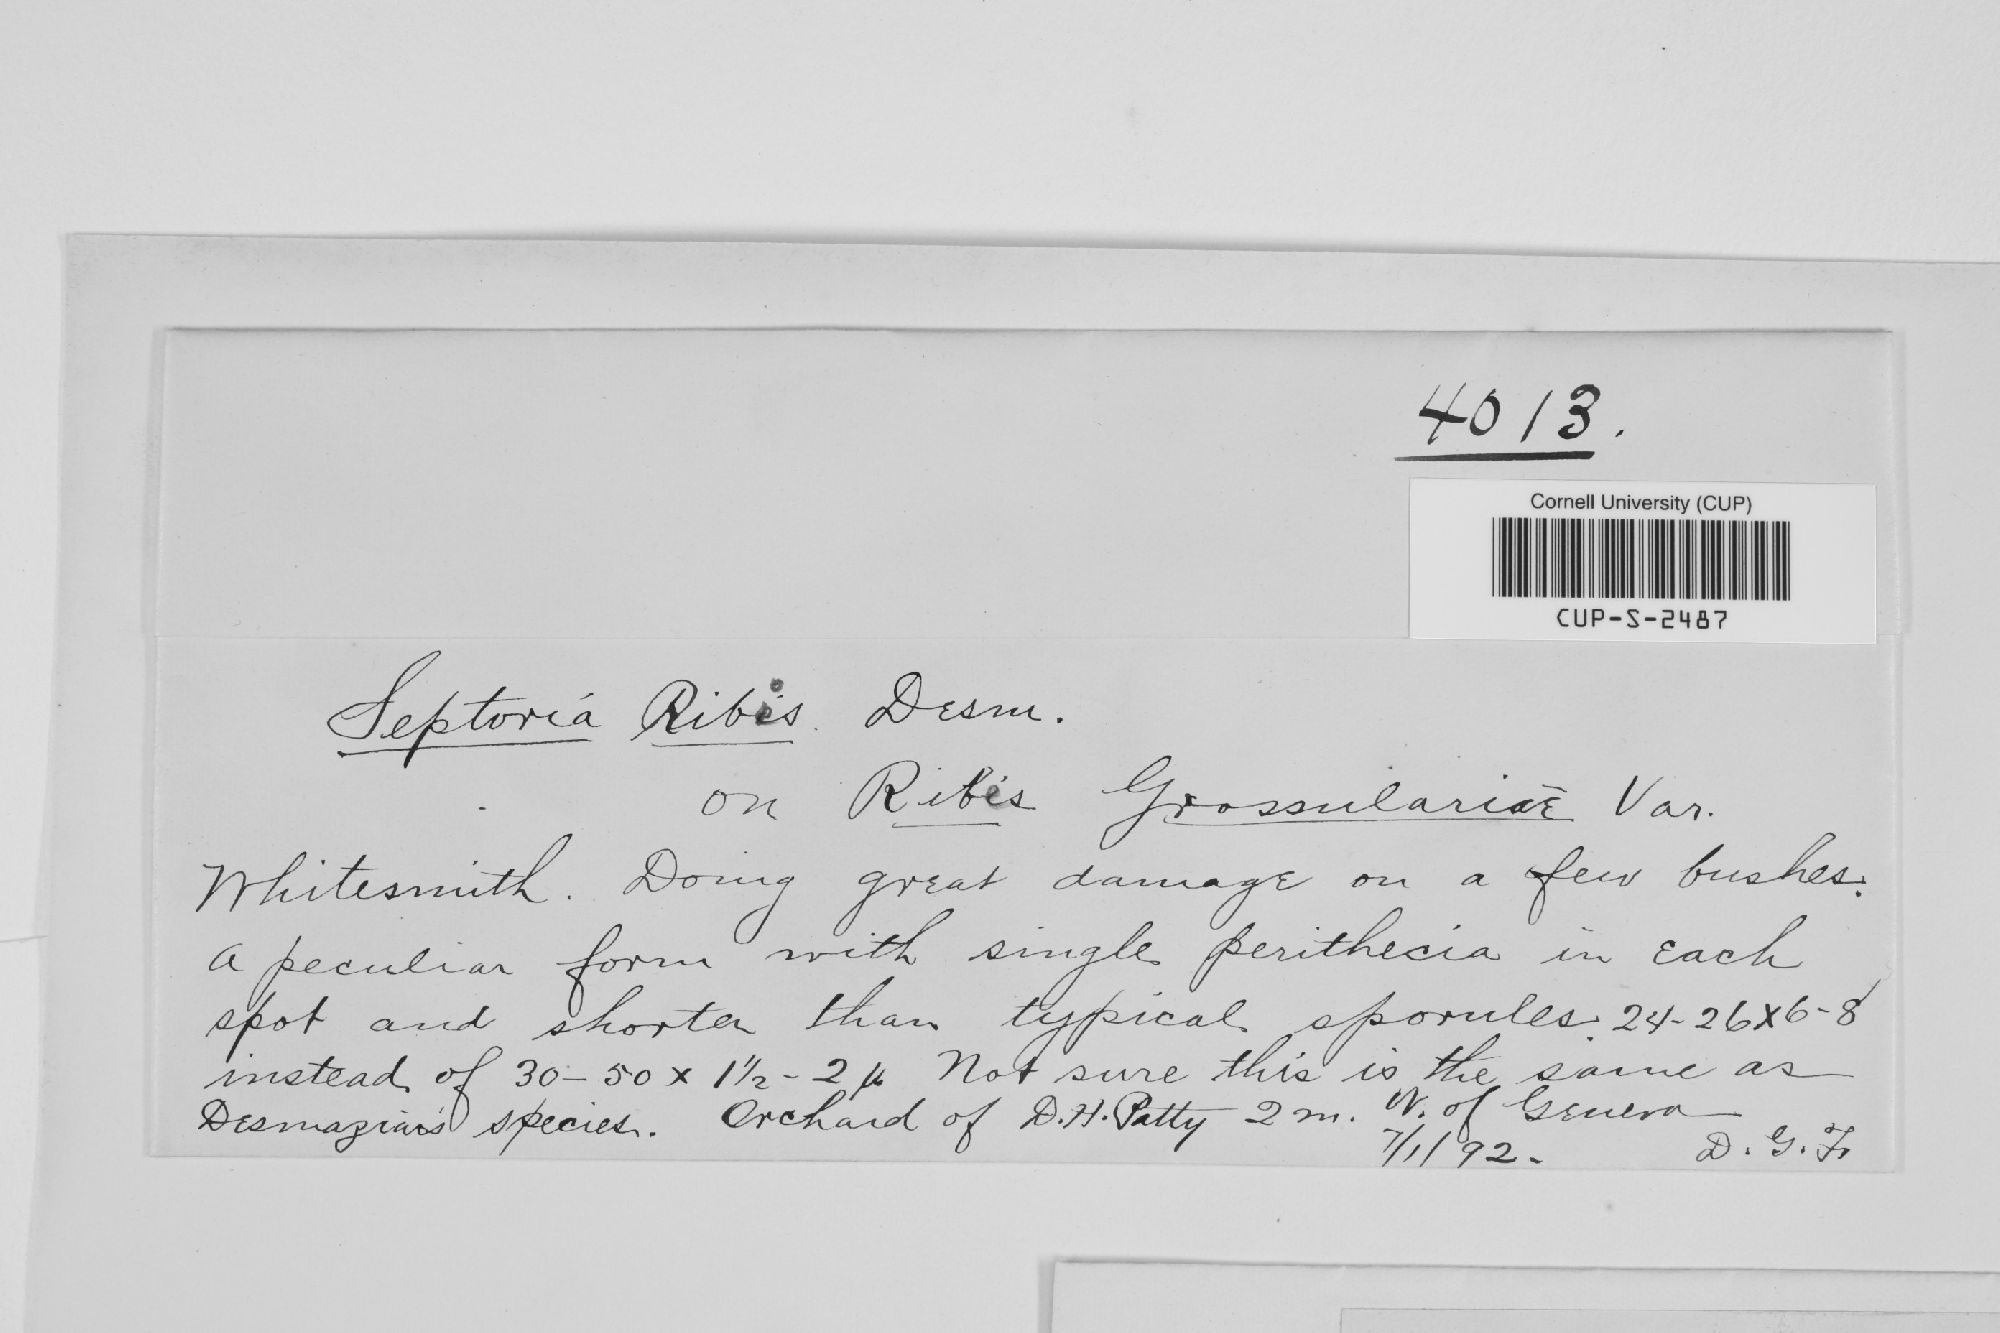 4013.
Cornell University (CUP)
CUP-S-2487
Septoria Ribis Desm.
on Ribis Grossulariae Var.
Whitesmith. Doing great damage on a few bushes.
A peculiar form with single perithecia in each
spot and shorter than typical sporules. 24-26x6-8
instead of 30-50 x 1½-2µ Not sure this is the same as
Desmaziar's species. Orchard of D.H. Patty 2 m. W. of Geneva
7/1/92. D.G.F.